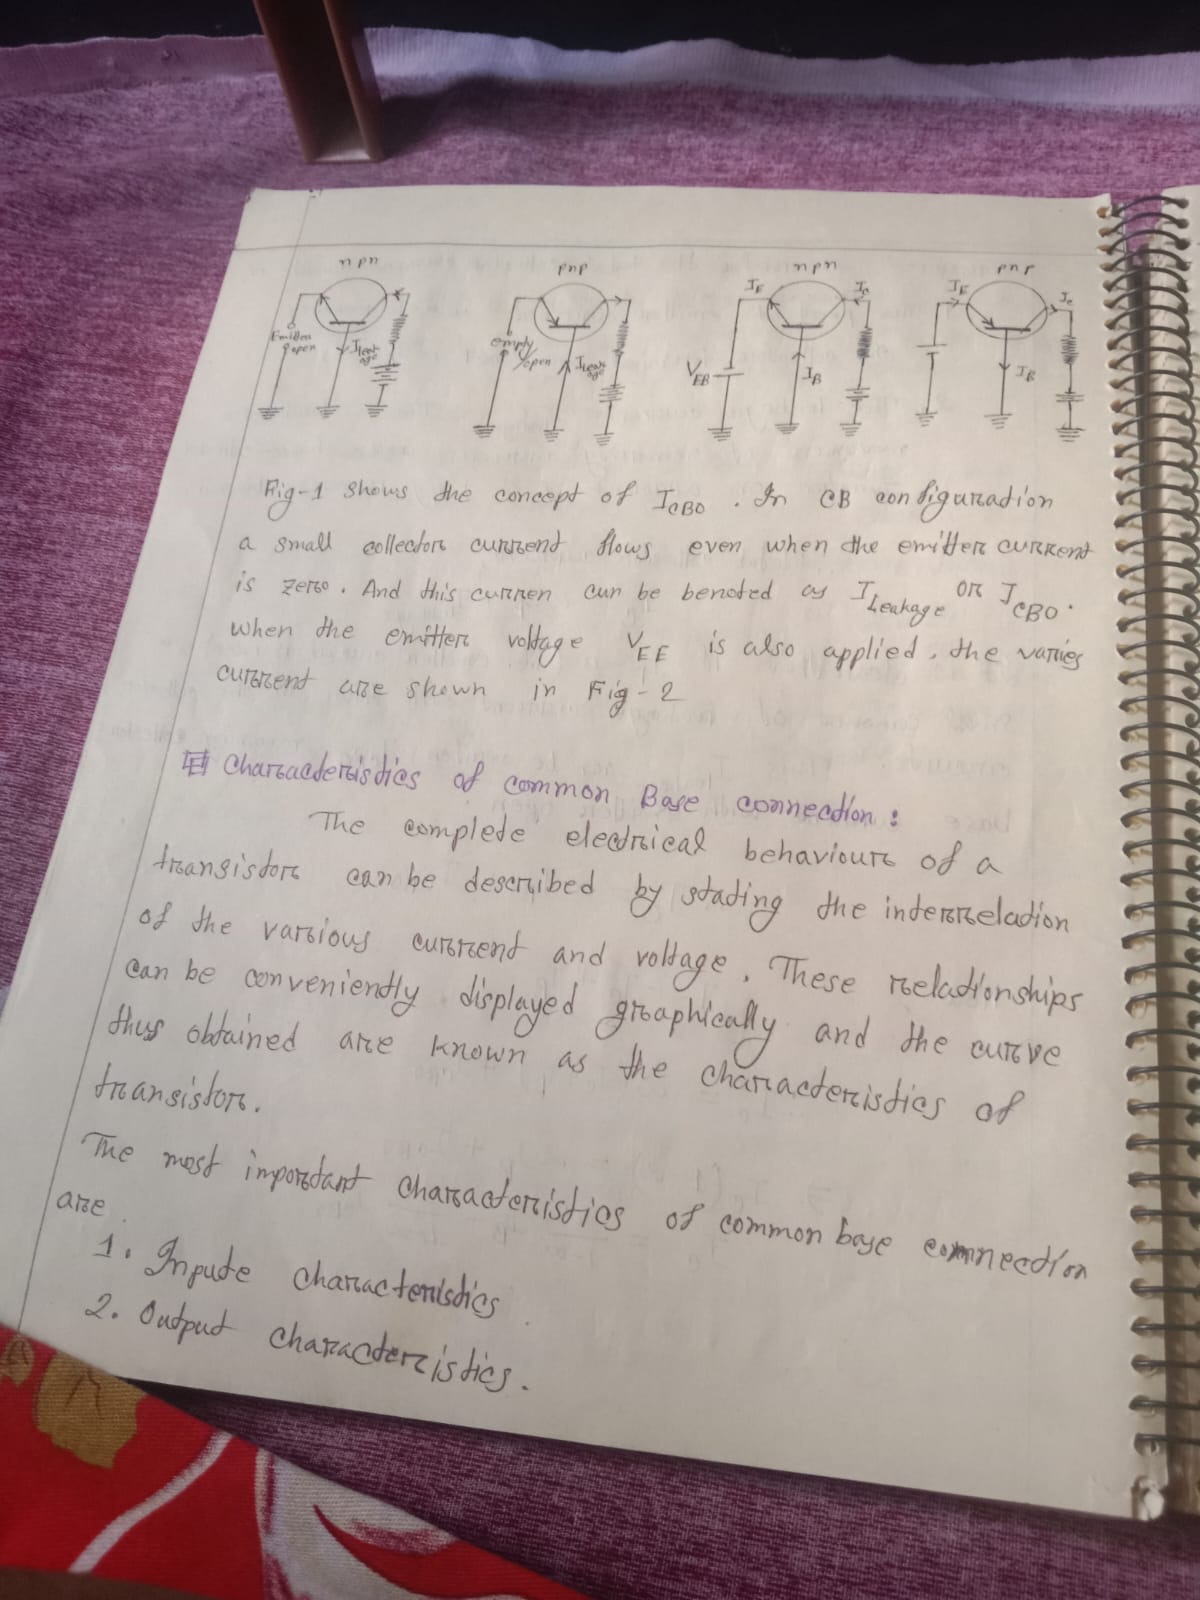 npn pnp npn pnp
IE Ic IE Ic
Emitter open Ileakage empty/open Ileakage VEB IB IB
Fig-1 shows the concept of ICBO. In CB configuration
a small collector current flows even when the emitter current
is zero. And this curren can be benoted as ILeakage or ICBO.
when the emitter voltage VEE is also applied, the varies
current are shown in Fig-2
Characteristics of common Base connection:
The complete electrical behaviour of a
transistor can be described by stating the interrelation
of the various current and voltage. These relationships
can be conveniently displayed graphically and the curve
thus obtained are known as the characteristics of
transistor.
The most important characteristics of common base connection
are
1. Inpute characteristics
2. Output characteristics.